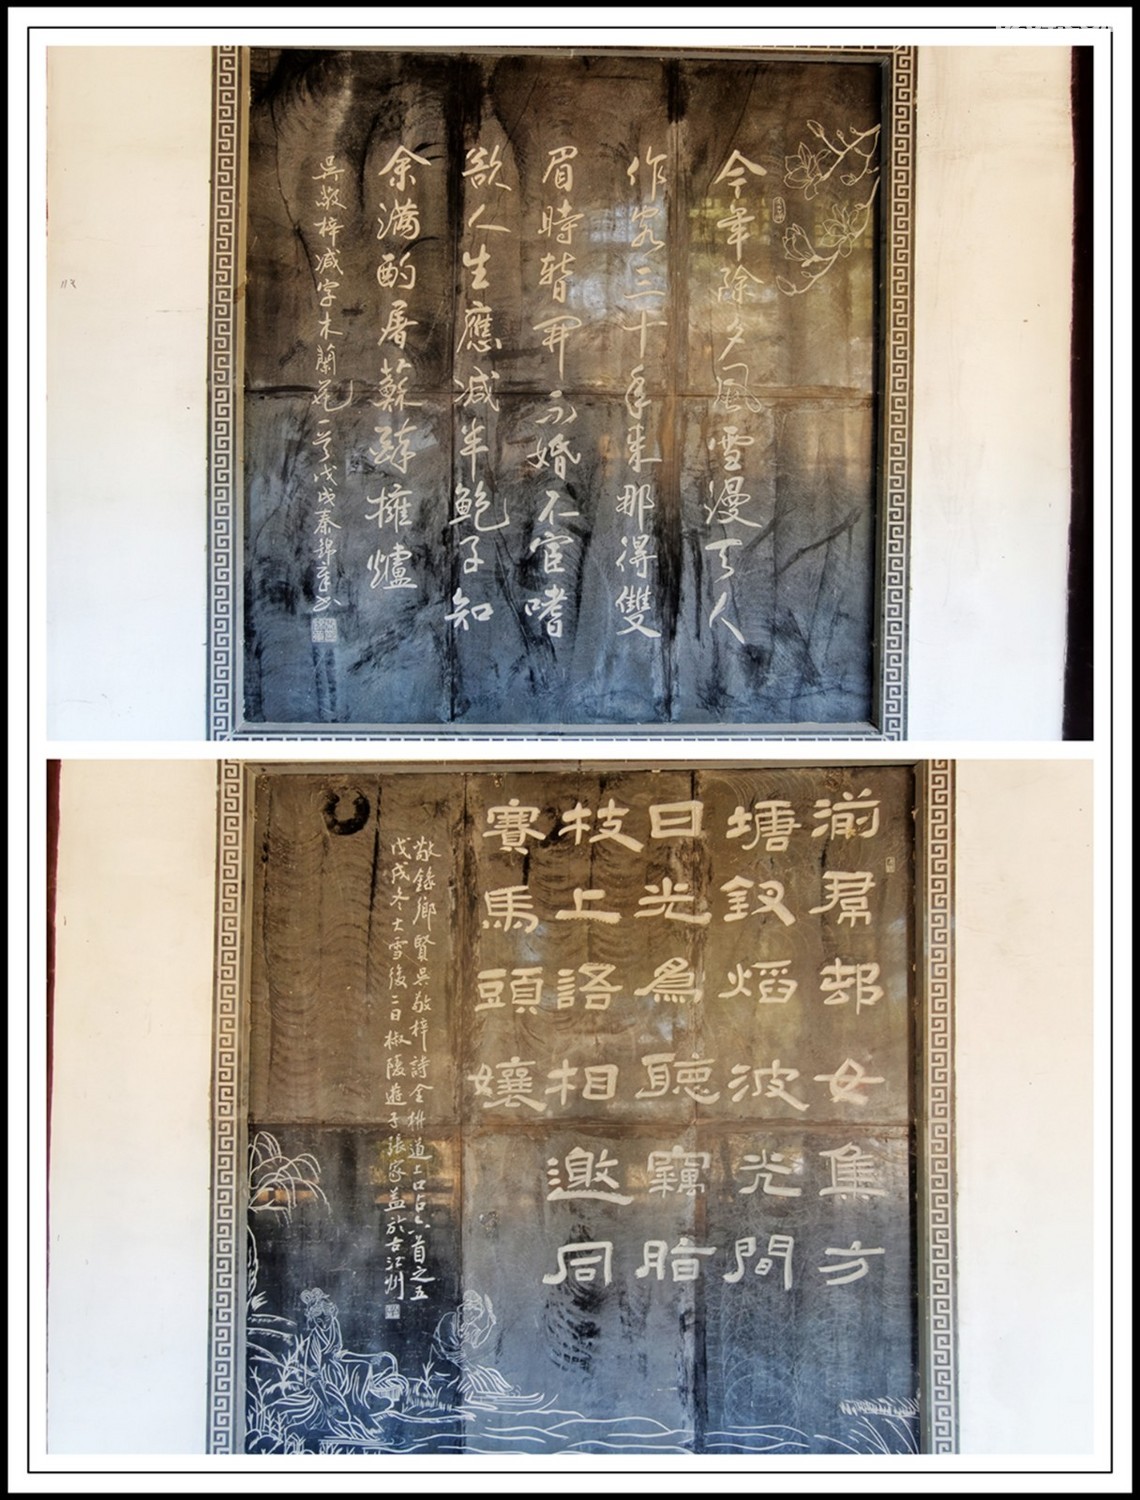 今年除夕風雪漫天人
作客三十年來那得雙
眉時暫開不婚不宦嗜
欲人生應減半鮑子知
余滿酌屠蘇醉擁爐
吳敬梓減字木蘭花一首戊戌秦錦章書
湔帬邨女集方
塘釵熖波光間
日光為聽竊脂
枝上語相邀同
賽馬頭孃
敬錄鄉賢吳敬梓詩金壇道上口占六首之五
戊戌冬大雪後二日椒陵遊子張家益於古江州